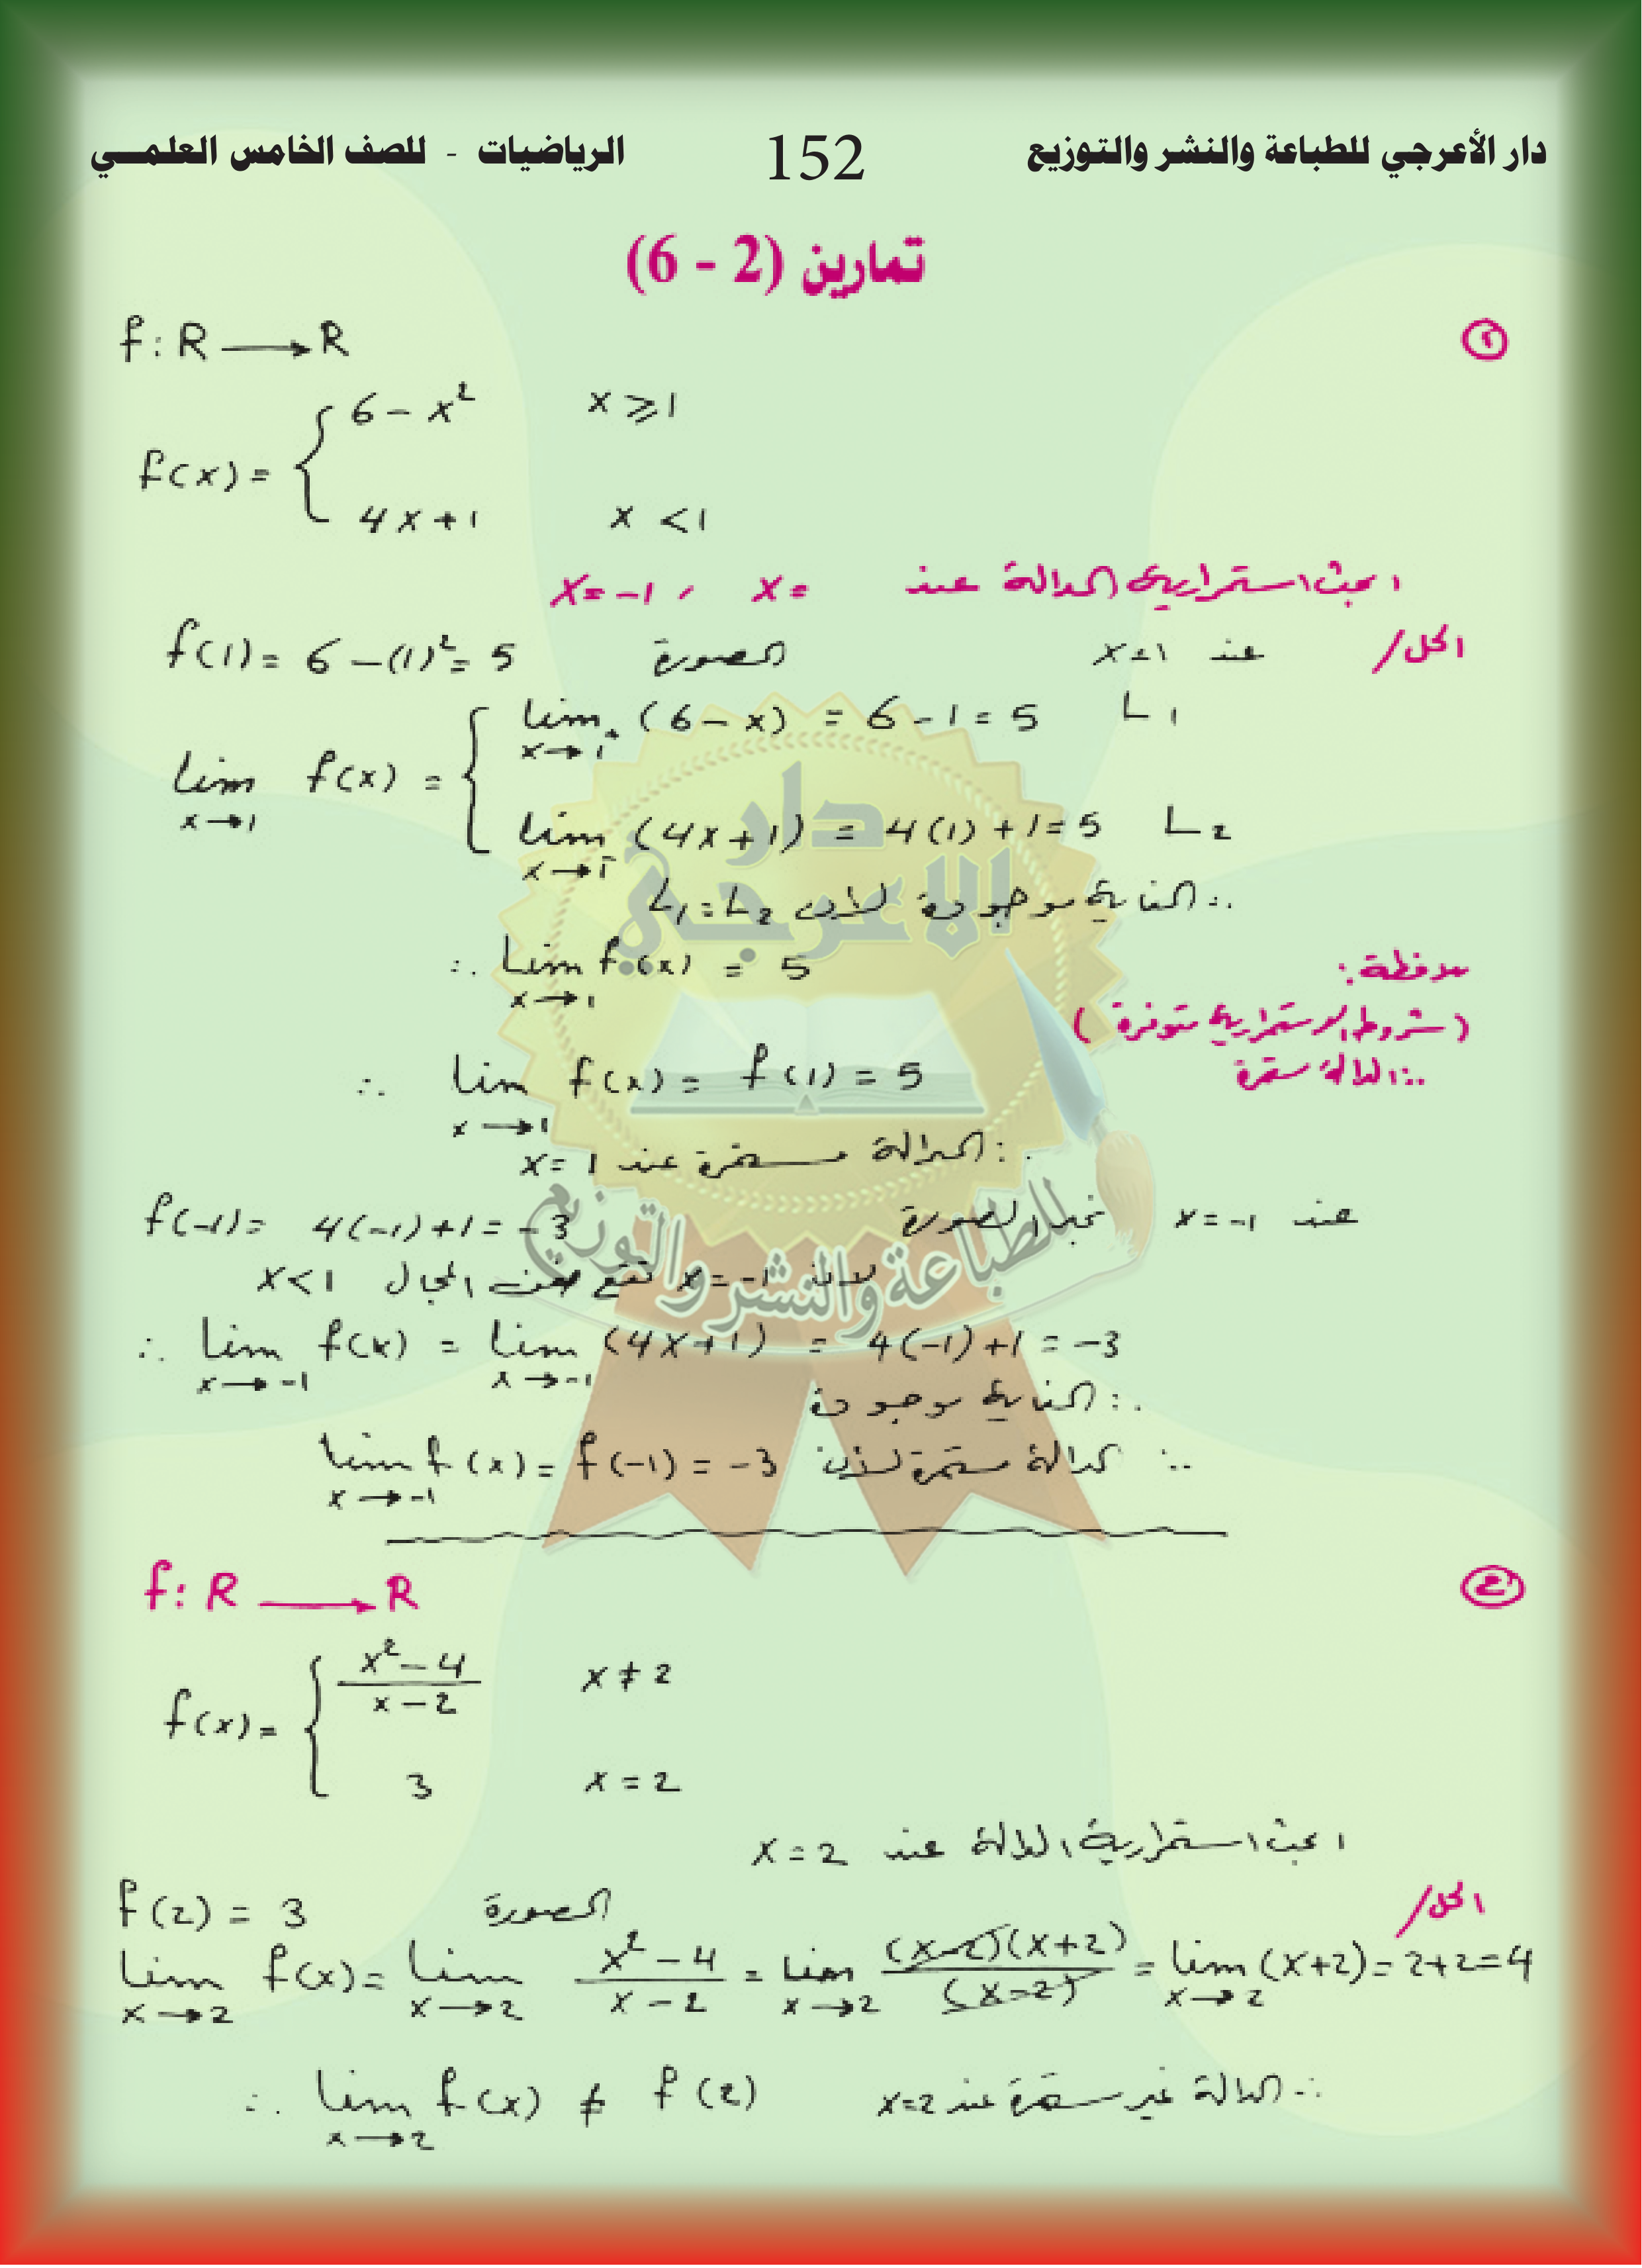 دار الأعرجي للطباعة والنشر والتوزيع 152 الرياضيات - للصف الخامس العلمي
تمارين (2 - 6)
f: R → R
f(x) = { 6 - x² x ≥ 1
4x + 1 x < 1
ابحث استمرارية الدالة عند x = , x = -1
الحل/ عند x = 1 الصورة f(1) = 6 - (1)² = 5
lim x→1 f(x) = { lim x→1⁺ (6 - x) = 6 - 1 = 5 L1
lim x→1⁻ (4x + 1) = 4(1) + 1 = 5 L2
∴ الغاية موجودة لأن L1 = L2
∴ lim x→1 f(x) = 5
ملاحظة:
(شروط الاستمرارية متوفرة)
∴ الدالة مستمرة
∴ lim x→1 f(x) = f(1) = 5
∴ الدالة مستمرة عند x = 1
عند x = -1 نجد الصورة f(-1) = 4(-1) + 1 = -3
لان x = -1 تقع ضمن المجال x < 1
∴ lim x→-1 f(x) = lim x→-1 (4x + 1) = 4(-1) + 1 = -3
∴ الغاية موجودة
∴ الدالة مستمرة لأن lim x→-1 f(x) = f(-1) = -3
f: R → R
f(x) = { (x² - 4)/(x - 2) x ≠ 2
3 x = 2
ابحث استمرارية الدالة عند x = 2
الحل/
f(2) = 3 الصورة
lim x→2 f(x) = lim x→2 (x² - 4)/(x - 2) = lim x→2 (x-2)(x+2)/(x-2) = lim x→2 (x+2) = 2+2 = 4
∴ lim x→2 f(x) ≠ f(2) ∴ الدالة غير مستمرة عند x=2
دار
الاعرجي
للطباعة والنشر والتوزيع